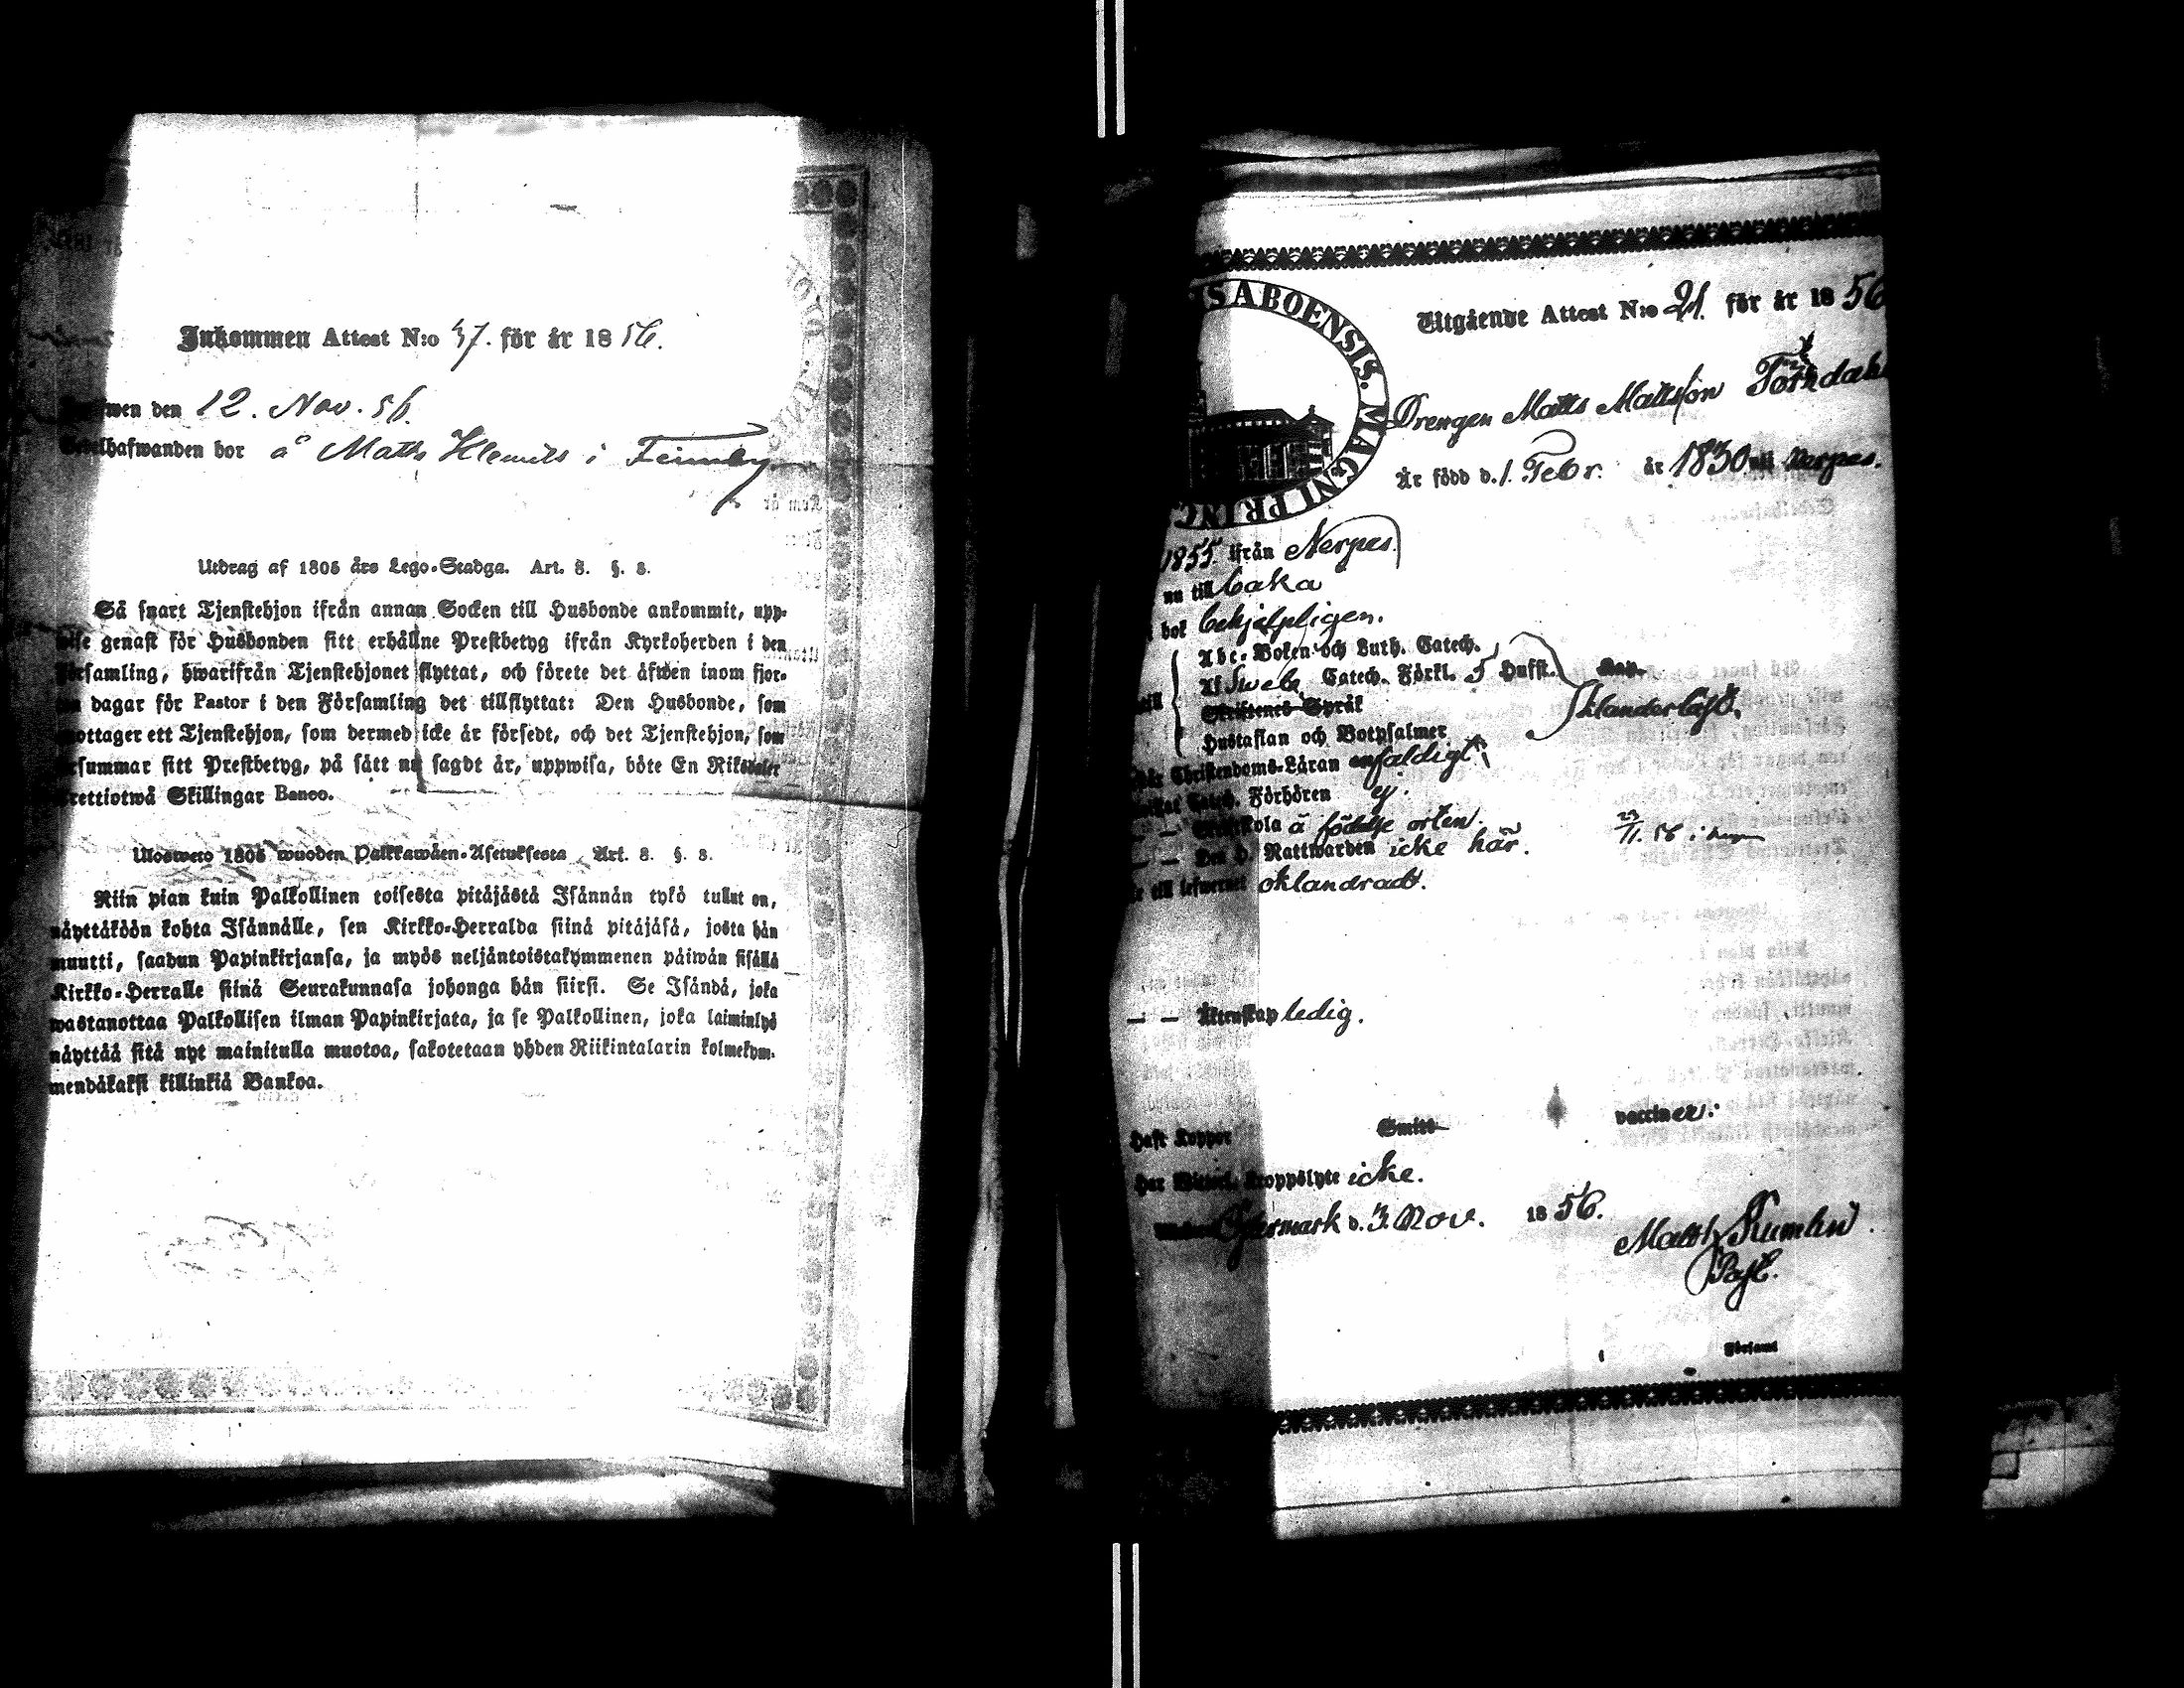 Inkommen Attest N:o 37. för år 1856.
den 12. Nov. 56.
bor å Matts Klemets i Finnby
Utdrag af 1805 års Lego-Stadga. Art. 8. §. 8.
Så snart Tjenstehjon ifrån annan Socken till Husbonde ankommit, upp-
wise genast för Husbonden sitt erhållne Prestbetyg ifrån Kyrkoherden i den
Församling, hwarifrån Tjenstehjonet flyttat, och förete det äfwen inom fjor-
ton dagar för Pastor i den Församling det tillflyttat: Den Husbonde, som
emottager ett Tjenstehjon, som dermed icke är försedt, och det Tjenstehjon, som
försummar sitt Prestbetyg, på sätt nu sagdt är, uppwisa, böte En Riksdaler
Trettiotwå Skillingar Banco.
Ulosweto 1805 wuoden Palkkawäen-Asetuksesta Art. 8. §. 8.
Niin pian kuin Palkollinen toisesta pitäjästä Isännän tykö tullut on,
näyttäköön kohta Isännälle, sen Kirkko-Herralda siinä pitäjäsä, josta hän
muutti, saadun Papinkirjansa, ja myös neljäntoistakymmenen päiwän sisällä
Kirkko-Herralle siinä Seurakunnasa johonga hän siirsi. Se Isändä, joka
wastanottaa Palkollisen ilman Papinkirjata, ja se Palkollinen, joka laiminlyö
näyttää sitä nyt mainitulla muotoa, sakotetaan yhden Riikintalarin kolmekym-
mendäkaksi killinkiä Bankoa.
S ABOENSIS. MAGNI PRINC
Utgående Attest N:o 21. för år 1856
Drengen Matts Mattsson
Är född d. 1. Febr. år 1830 uti Nerpes.
1855. ifrån Nerpes
nu till
bok behjelpligen.
Abc-Boken och Luth. Catech.
Af Sweb. Catech. Förkl. 5 Hufst. Kap.
Skriftenes Språk
Hustaflan och Botpsalmer
Christendoms-Läran enfaldigt
Catech. Förhören ej.
å födelse orten.
Den H. Nattwarden icke här.
23/11. 56 i
till lefwernet oklandrad.
— — Äktenskap ledig.
Haft Koppor Smitt vaccin er.
Har Kroppslyte icke.
d. 3. Nov. 1856.
Matth Kumlin
Past.
Församl